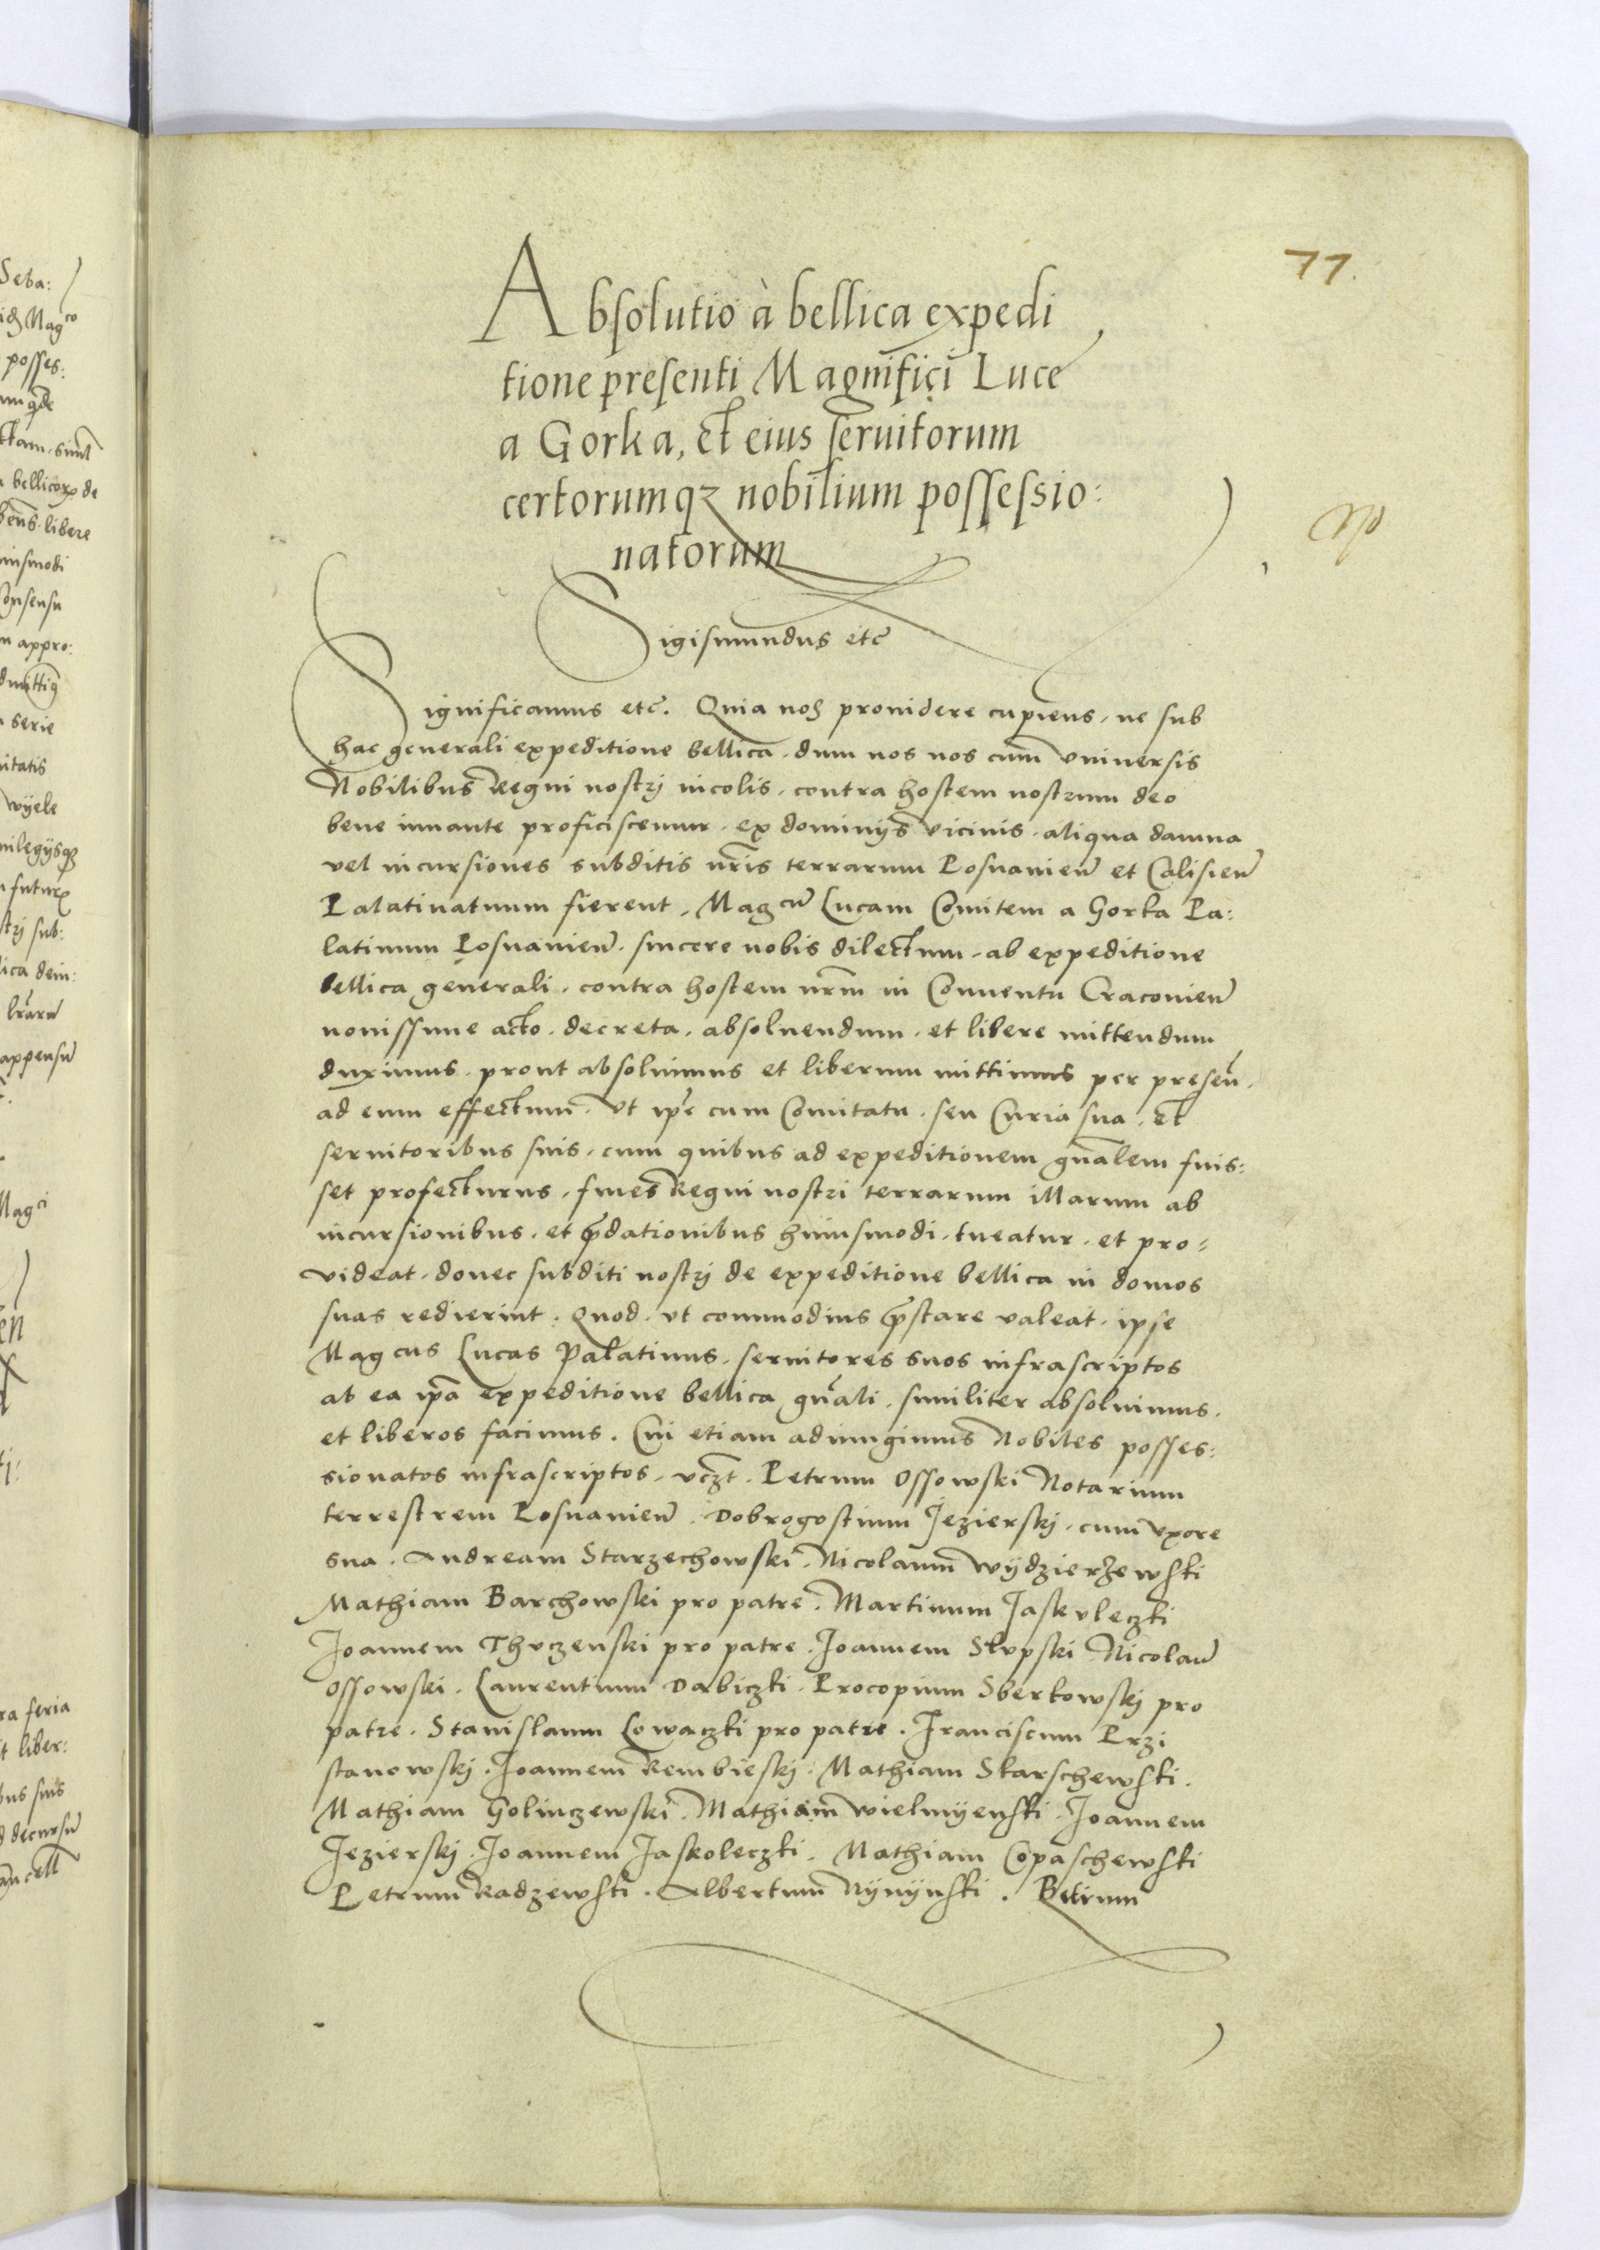 77.
Absolutio à bellica expedi
tione presenti Magnifici Luce
a Gorka, et eius seruitorum
certorumqz nobilium possessio:
natorum
Sigismundus etc
Significamus etc. Quia nos prouidere cupiens, ne sub
hac generali expeditione bellica, dum nos nos cum vniuersis
Nobilibus Regni nostrj incolis, contra hostem nostrum deo
bene iuuante proficiscemur, ex dominijs vicinis, aliqua damna
vel incursiones subditis nris terrarum Posnanien et Calisien
Palatinatuum fierent, Magcu Lucam Comitem a Gorka Pa:
latinum Posnanien, sincere nobis dilectum, ab expeditione
bellica generali, contra hostem nrm in Conuentu Cracouien
nouissime acto, decreta, absoluendum, et libere mittendum
duximus, prout absoluimus et liberum mittimus per presen,
ad eum effectum, Vt ipe cum Comitatu, seu Curia sua, et
seruitoribus suis, cum quibus ad expeditionem gnalem fuis:
set profecturus, fines Regni nostri terrarum illarum ab
incursionibus, et pdationibus huiusmodi, tueatur, et pro:
videat, donec subditi nostrj de expeditione bellica in domos
suas redierint. Quod, vt commodius pstare valeat, ipse
Magcus Lucas Palatinus, seruitores suos infrascriptos
ab ea ipa expeditione bellica gnali, similiter absoluimus,
et liberos facimus. Cui etiam adiungimus Nobiles posses:
sionatos infrascriptos, vczt. Petrum Ossowski Notarium
terrestrem Posnanien. Dobrogostium Jezierskj, cum vxore
sua. Andream Starzechowski. Nicolaum Wydzierzewski
Mathiam Barchowski pro patre. Martinum Jaskvleczki
Joannem Thvczenski pro patre. Joannem Slvpski Nicolau
Ossowski. Laurentium Dabiczki. Procopium Sberkowskj pro
patre. Stanislaum Lowaczki pro patre. Franciscum Przi
stanowskj. Joannem Rembieskj. Mathiam Skarschewski.
Mathiam Golinczewski. Mathiam Wielmyenski. Joannem
Jezierskj. Joannem Jaskoleczki. Mathiam Copaschewski
Petrum Radzewski. Albertum Nynynski. Petrum